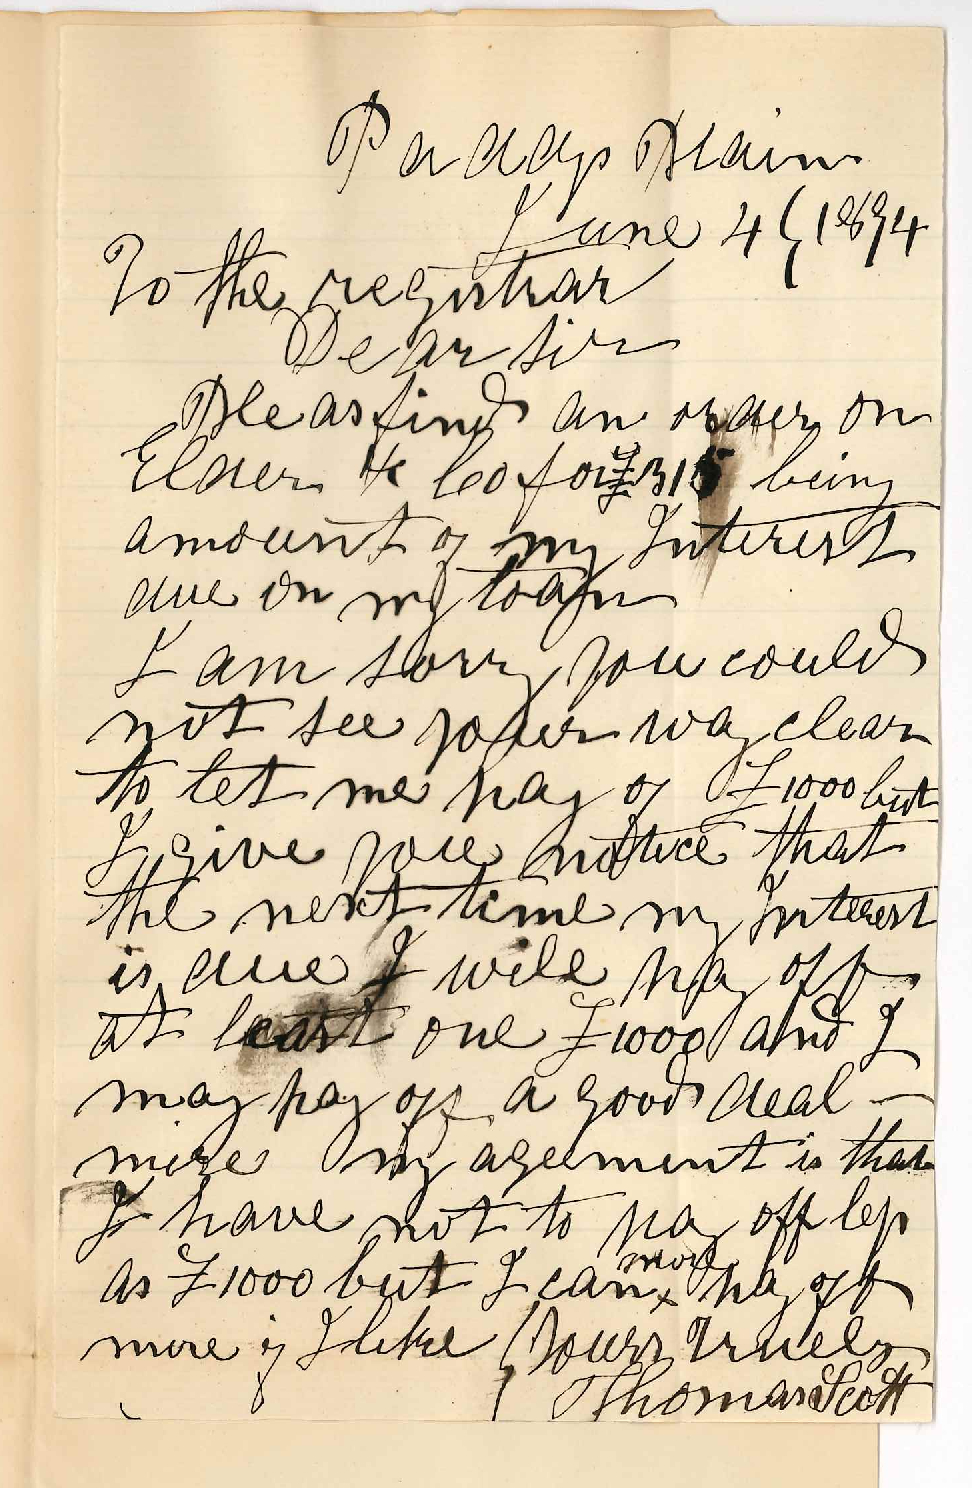 Paddys Plain
June 4 { 1894
To the registrar
Dear sir
Pleas find an order on
Elder & Co for £315 being
amount of my Interest
due on my loan
I am sorry you could
not see your way clear
to let me pay of £1000 but
I give you notice that
the next time my Interest
is due I will pay off
at least one £1000 and I
may pay off a good deal —
more my ageement is that
I have not to pay off less
more
as £1000 but I can x pay off
more if I like Yours Truely
Thomas Scott